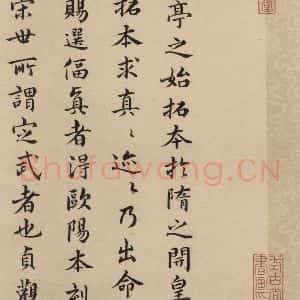 亭之始拓本於隋之開皇
拓本求真〻迹〻乃出命
賜選偪真者得歐陽本刻
宋世所謂定武者也貞觀
Shufawang.CN